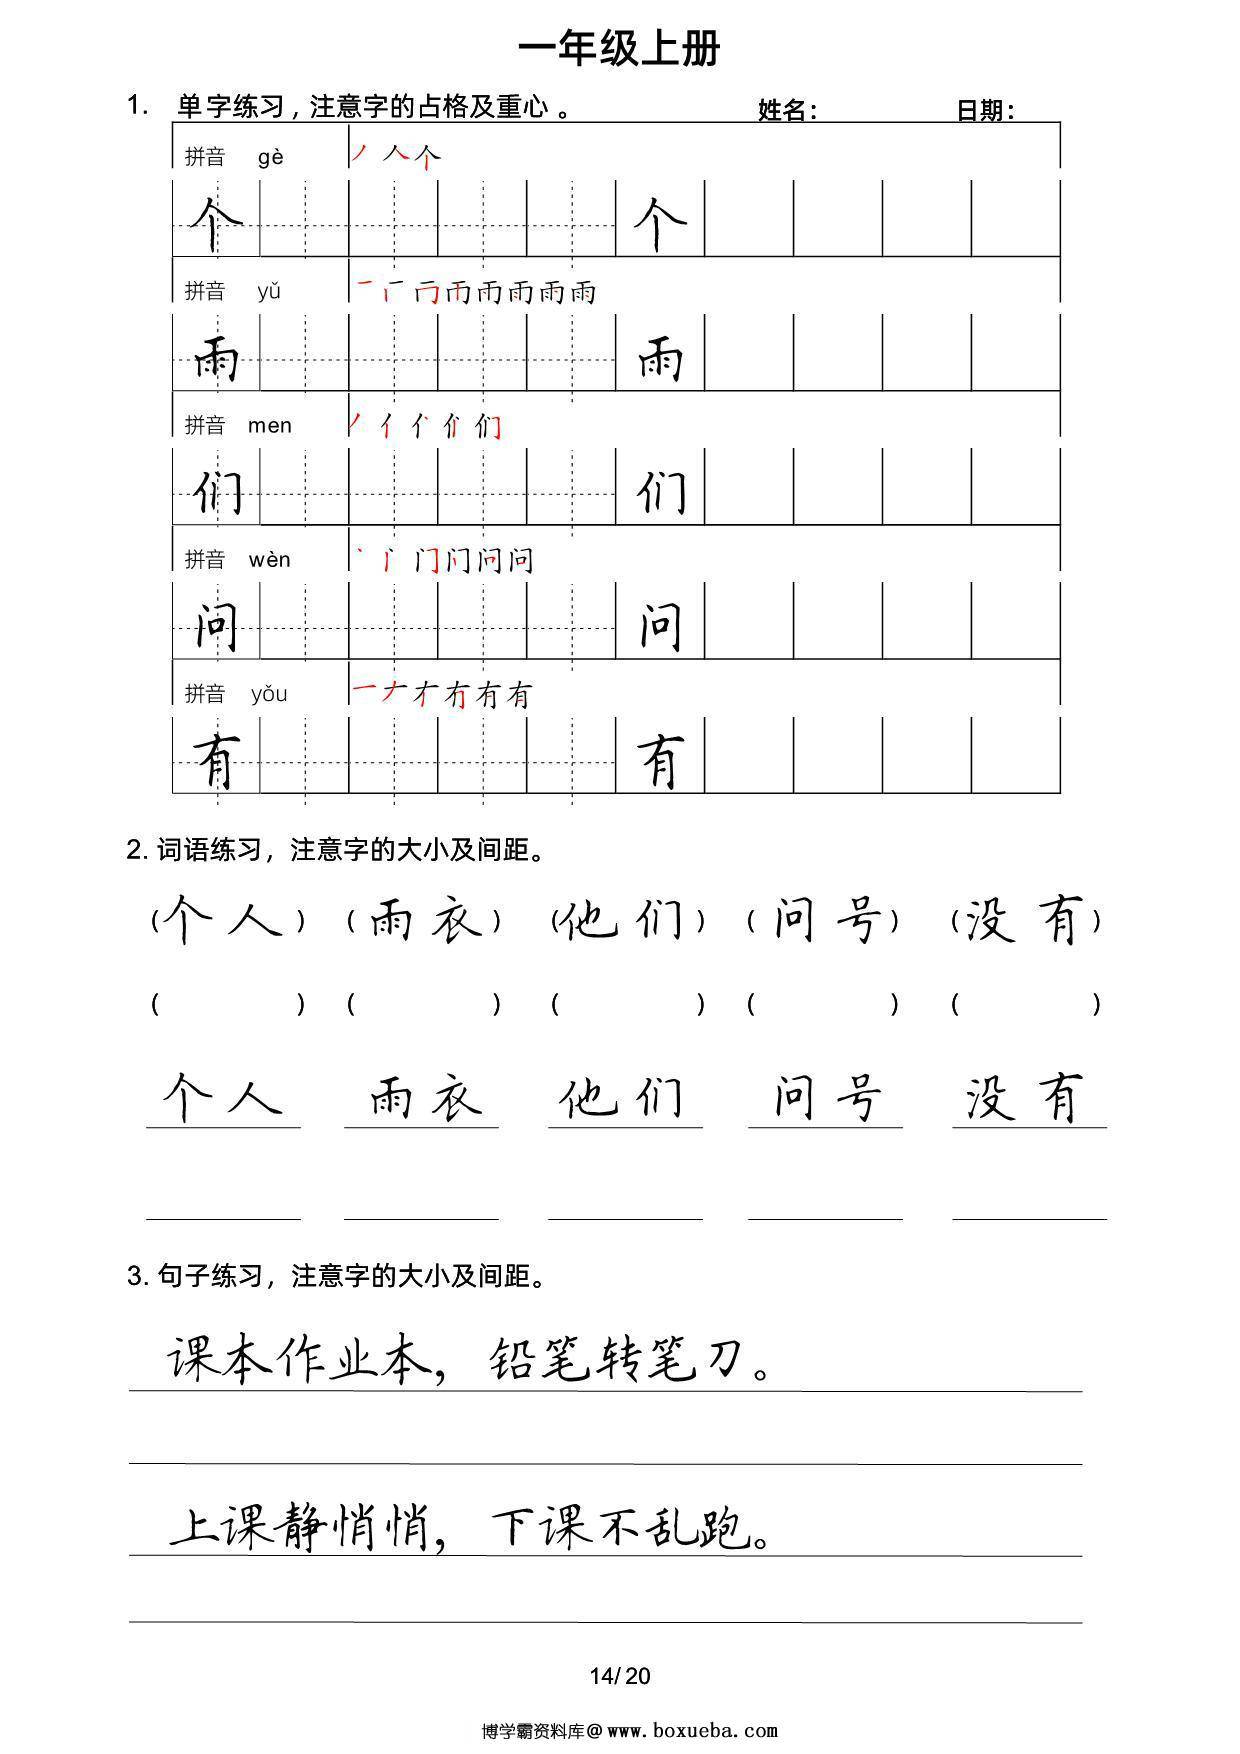 一年级上册
1. 单字练习，注意字的占格及重心。 姓名： 日期：
拼音 gè 丿 人 个
个 个
拼音 yǔ 雨 雨 雨
雨 雨
拼音 men 丿 亻 们
们 们
拼音 wèn 丶 门 门 问 问
问 问
拼音 yǒu 一 ナ 有 有
有 有
2. 词语练习，注意字的大小及间距。
（个人）（雨衣）（他们）（问号）（没有）
（ ）（ ）（ ）（ ）（ ）
个人 雨衣 他们 问号 没有
3. 句子练习，注意字的大小及间距。
课本作业本，铅笔转笔刀。
上课静悄悄，下课不乱跑。
14/20
博学霸资料库@www.boxueba.com